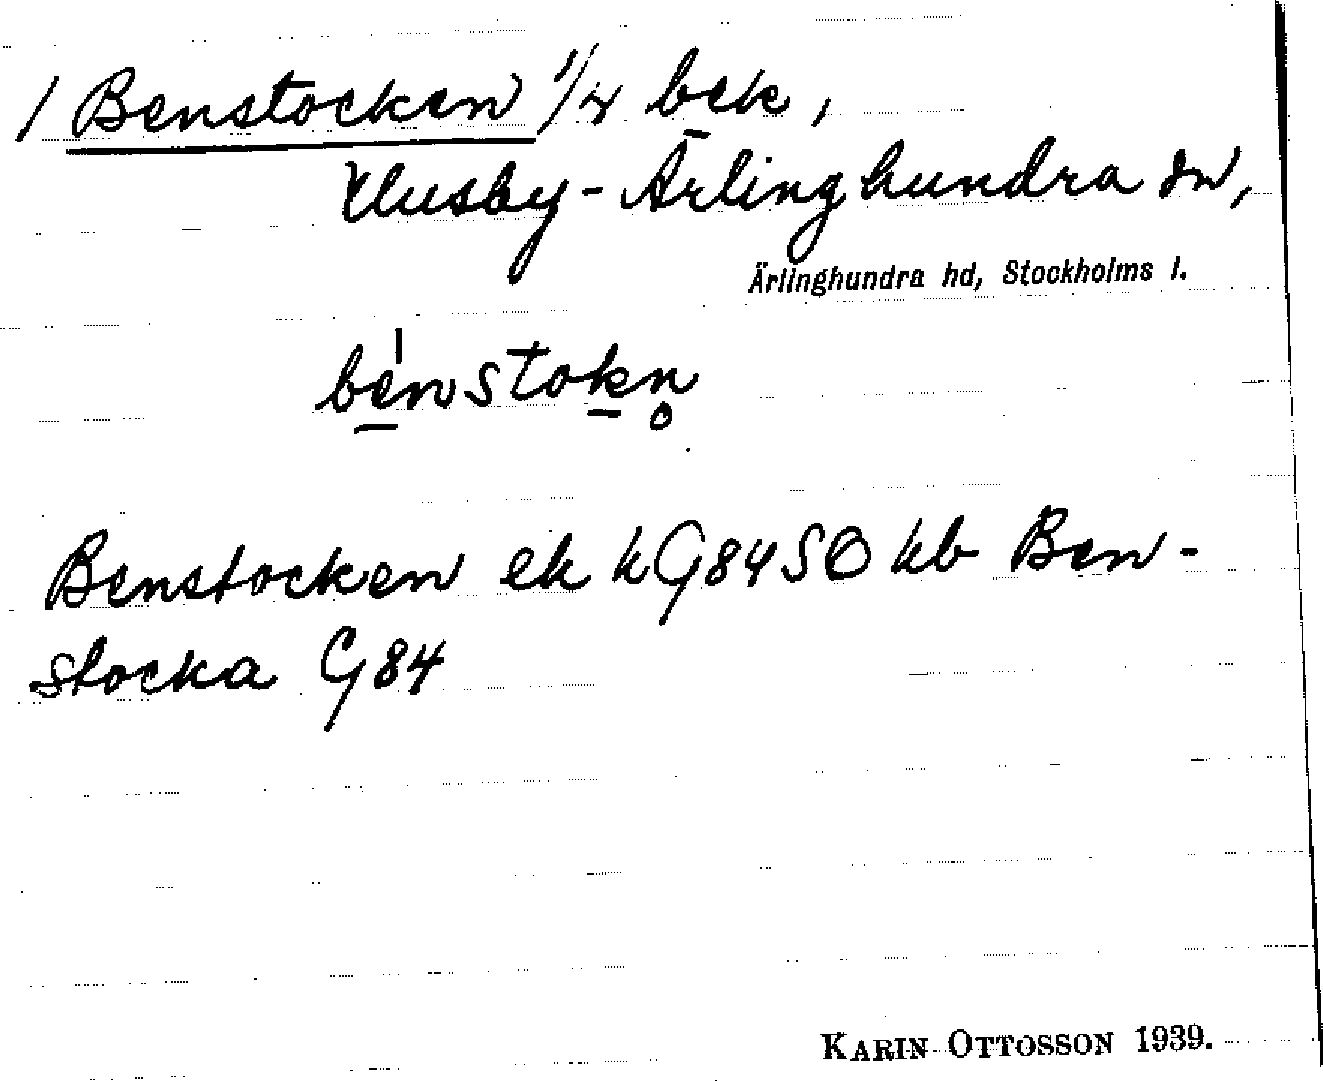 / Benstocken 1/4 bek,
Husby-Ärlinghundra sn,
Ärlinghundra hd, Stockholms l.
bénstokn̥
Benstocken ek kG84SO kb Ben-
stocka G84
KARIN OTTOSSON 1939.